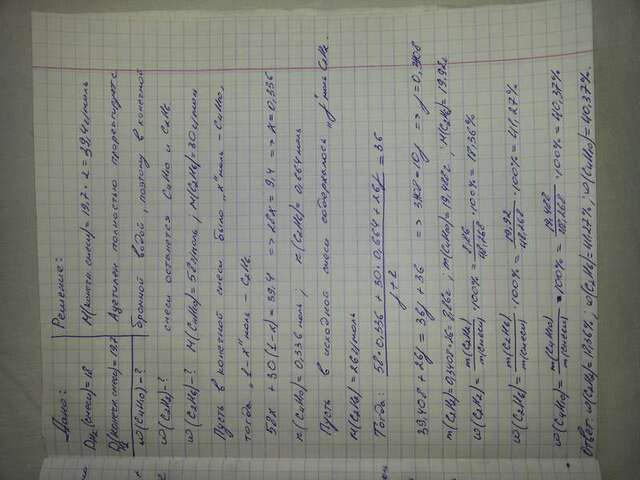 Дано:
D H₂ (смеси) = 18
D H₂ (конечн. смеси) = 19,7
ω(C₄H₁₀) - ?
ω(C₂H₂) - ?
ω(C₂H₆) - ?
Решение:
M(конечн. смеси) = 19,7 · 2 = 39,4 г/моль
Ацетилен полностью прореагирует с
бромной водой, поэтому в конечной
смеси останется C₄H₁₀ и C₂H₆
M(C₄H₁₀) = 58 г/моль; M(C₂H₆) = 30 г/моль
Пусть в конечной смеси было "x" моль - C₄H₁₀,
тогда "1-x" моль - C₂H₆
58x + 30(1-x) = 39.4 => 28x = 9.4 => x = 0,336
n(C₄H₁₀) = 0,336 моль; n(C₂H₆) = 0,664 моль
Пусть в исходной смеси содержалось "y" моль C₂H₂.
M(C₂H₂) = 26 г/моль
Тогда: (58·0.336 + 30·0.664 + 26y) / (y+1) = 36
39,408 + 26y = 36y + 36 => 3,408 = 10y => y = 0,3408
m(C₂H₂) = 0,3408·26 = 8,86г; m(C₄H₁₀) = 19,488г; m(C₂H₆) = 19,92г
ω(C₂H₂) = m(C₂H₂) / m(смеси) · 100% = 8,86 / 48,268 · 100% = 18.36%
ω(C₂H₆) = m(C₂H₆) / m(смеси) · 100% = 19,92 / 48,268 · 100% = 41,27%
ω(C₄H₁₀) = m(C₄H₁₀) / m(смеси) · 100% = 19,488 / 48,268 · 100% = 40,37%
Ответ: ω(C₂H₂) = 18.36%; ω(C₂H₆) = 41,27%; ω(C₄H₁₀) = 40,37%.